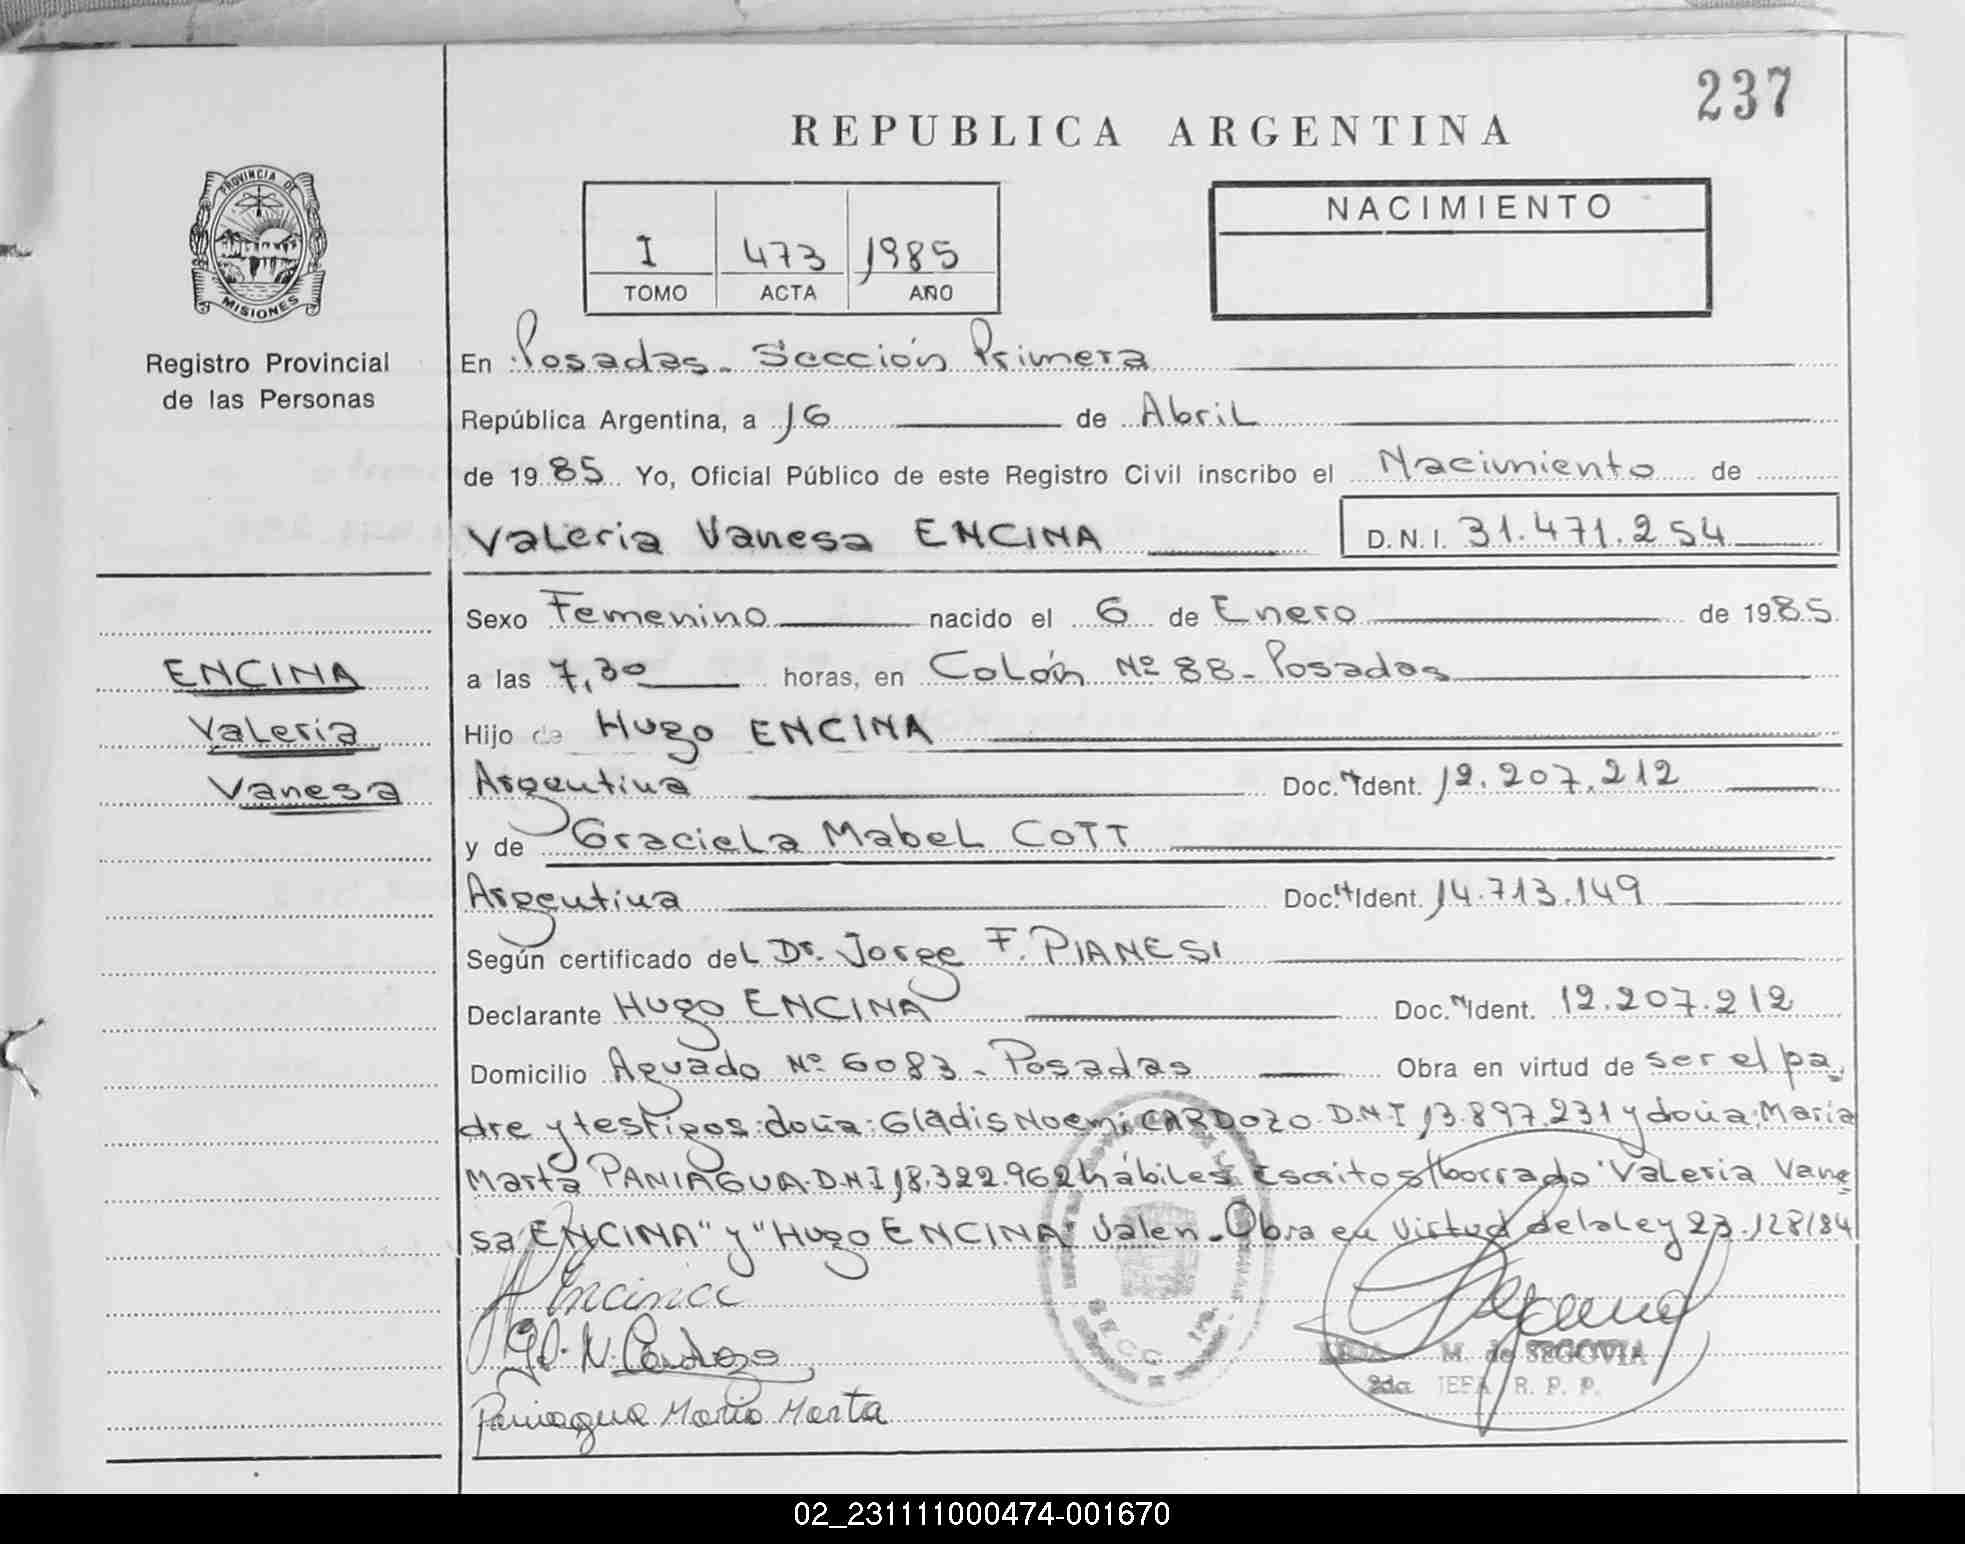 237
REPUBLICA ARGENTINA
PROVINCIA DE
MISIONES
Registro Provincial
de las Personas
I 473 1985
TOMO ACTA AÑO
NACIMIENTO
En Posadas - Sección Primera
República Argentina, a 16 de Abril
de 1985 Yo, Oficial Público de este Registro Civil inscribo el Nacimiento de
Valeria Vanesa ENCINA D.N.I. 31.471.254
ENCINA
Valeria
Vanesa
Sexo Femenino nacido el 6 de Enero de 1985
a las 7,30 horas, en Colón Nº 88 - Posadas
Hijo de Hugo ENCINA
Argentina Doc. Ident. 12.207.212
y de Graciela Mabel COTT
Argentina Doc. Ident. 14.713.149
Según certificado del Dr. Jorge F. PIANESI
Declarante Hugo ENCINA Doc. Ident. 12.207.212
Domicilio Aguado Nº 6083 - Posadas Obra en virtud de ser el pa
dre y testigos: doña: Gladis Noemi CARDOZO. D.N.I 13.897.231 y doña: Maria
Marta PANIAGUA. D.N.I 18.322.962 hábiles. Escritos/borrado "Valeria Vane
sa ENCINA" y "Hugo ENCINA" Valen. Obra en virtud de la ley 23.128/84
H Encina
Gl. N. Cardozo
Paniagua Maria Marta
M. de SEGOVIA
2da. JEFA R. P. P.
02_231111000474-001670